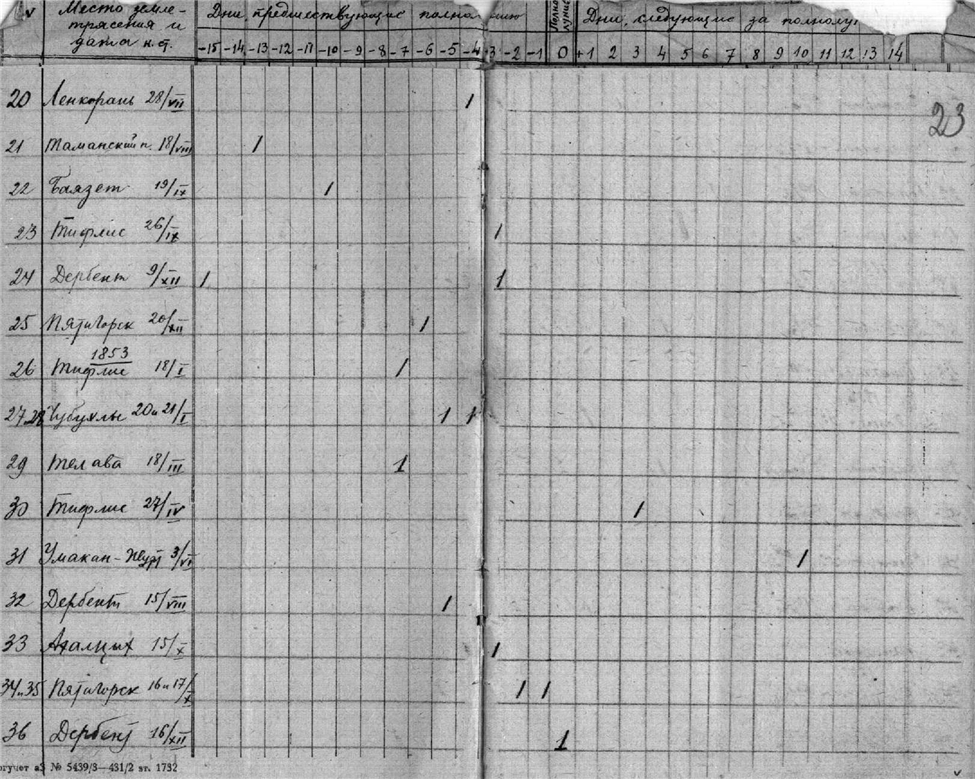 Место земле- Дни, предшествующие полнолунию Полно- Дни, следующие за полнолун
трясения и луние
дата н.д. -15 -14 -13 -12 -11 -10 -9 -8 -7 -6 -5 -4 -3 -2 -1 0 +1 2 3 4 5 6 7 8 9 10 11 12 13 14
20 Ленкорань 28/VII 1
23
21 Таманский п. 18/VIII 1
22 Баязет 19/IX 1
23 Тифлис 26/IX 1
24 Дербент 9/XII 1 1
25 Пятигорск 20/XII 1
1853
26 Тифлис 18/I 1
27.28 Чубухлы 20 и 21/I 1 1
29 Телава 18/III 1
30 Тифлис 27/IV 1
31 Умакан- 3/VI 1
32 Дербент 15/VIII 1
33 Ахалцых 15/X 1
34.35 Пятигорск 16 и 17/X 1 1
36 Дербент 16/XII 1
огучет аЗ № 5439/3—431/2 вт. 1732